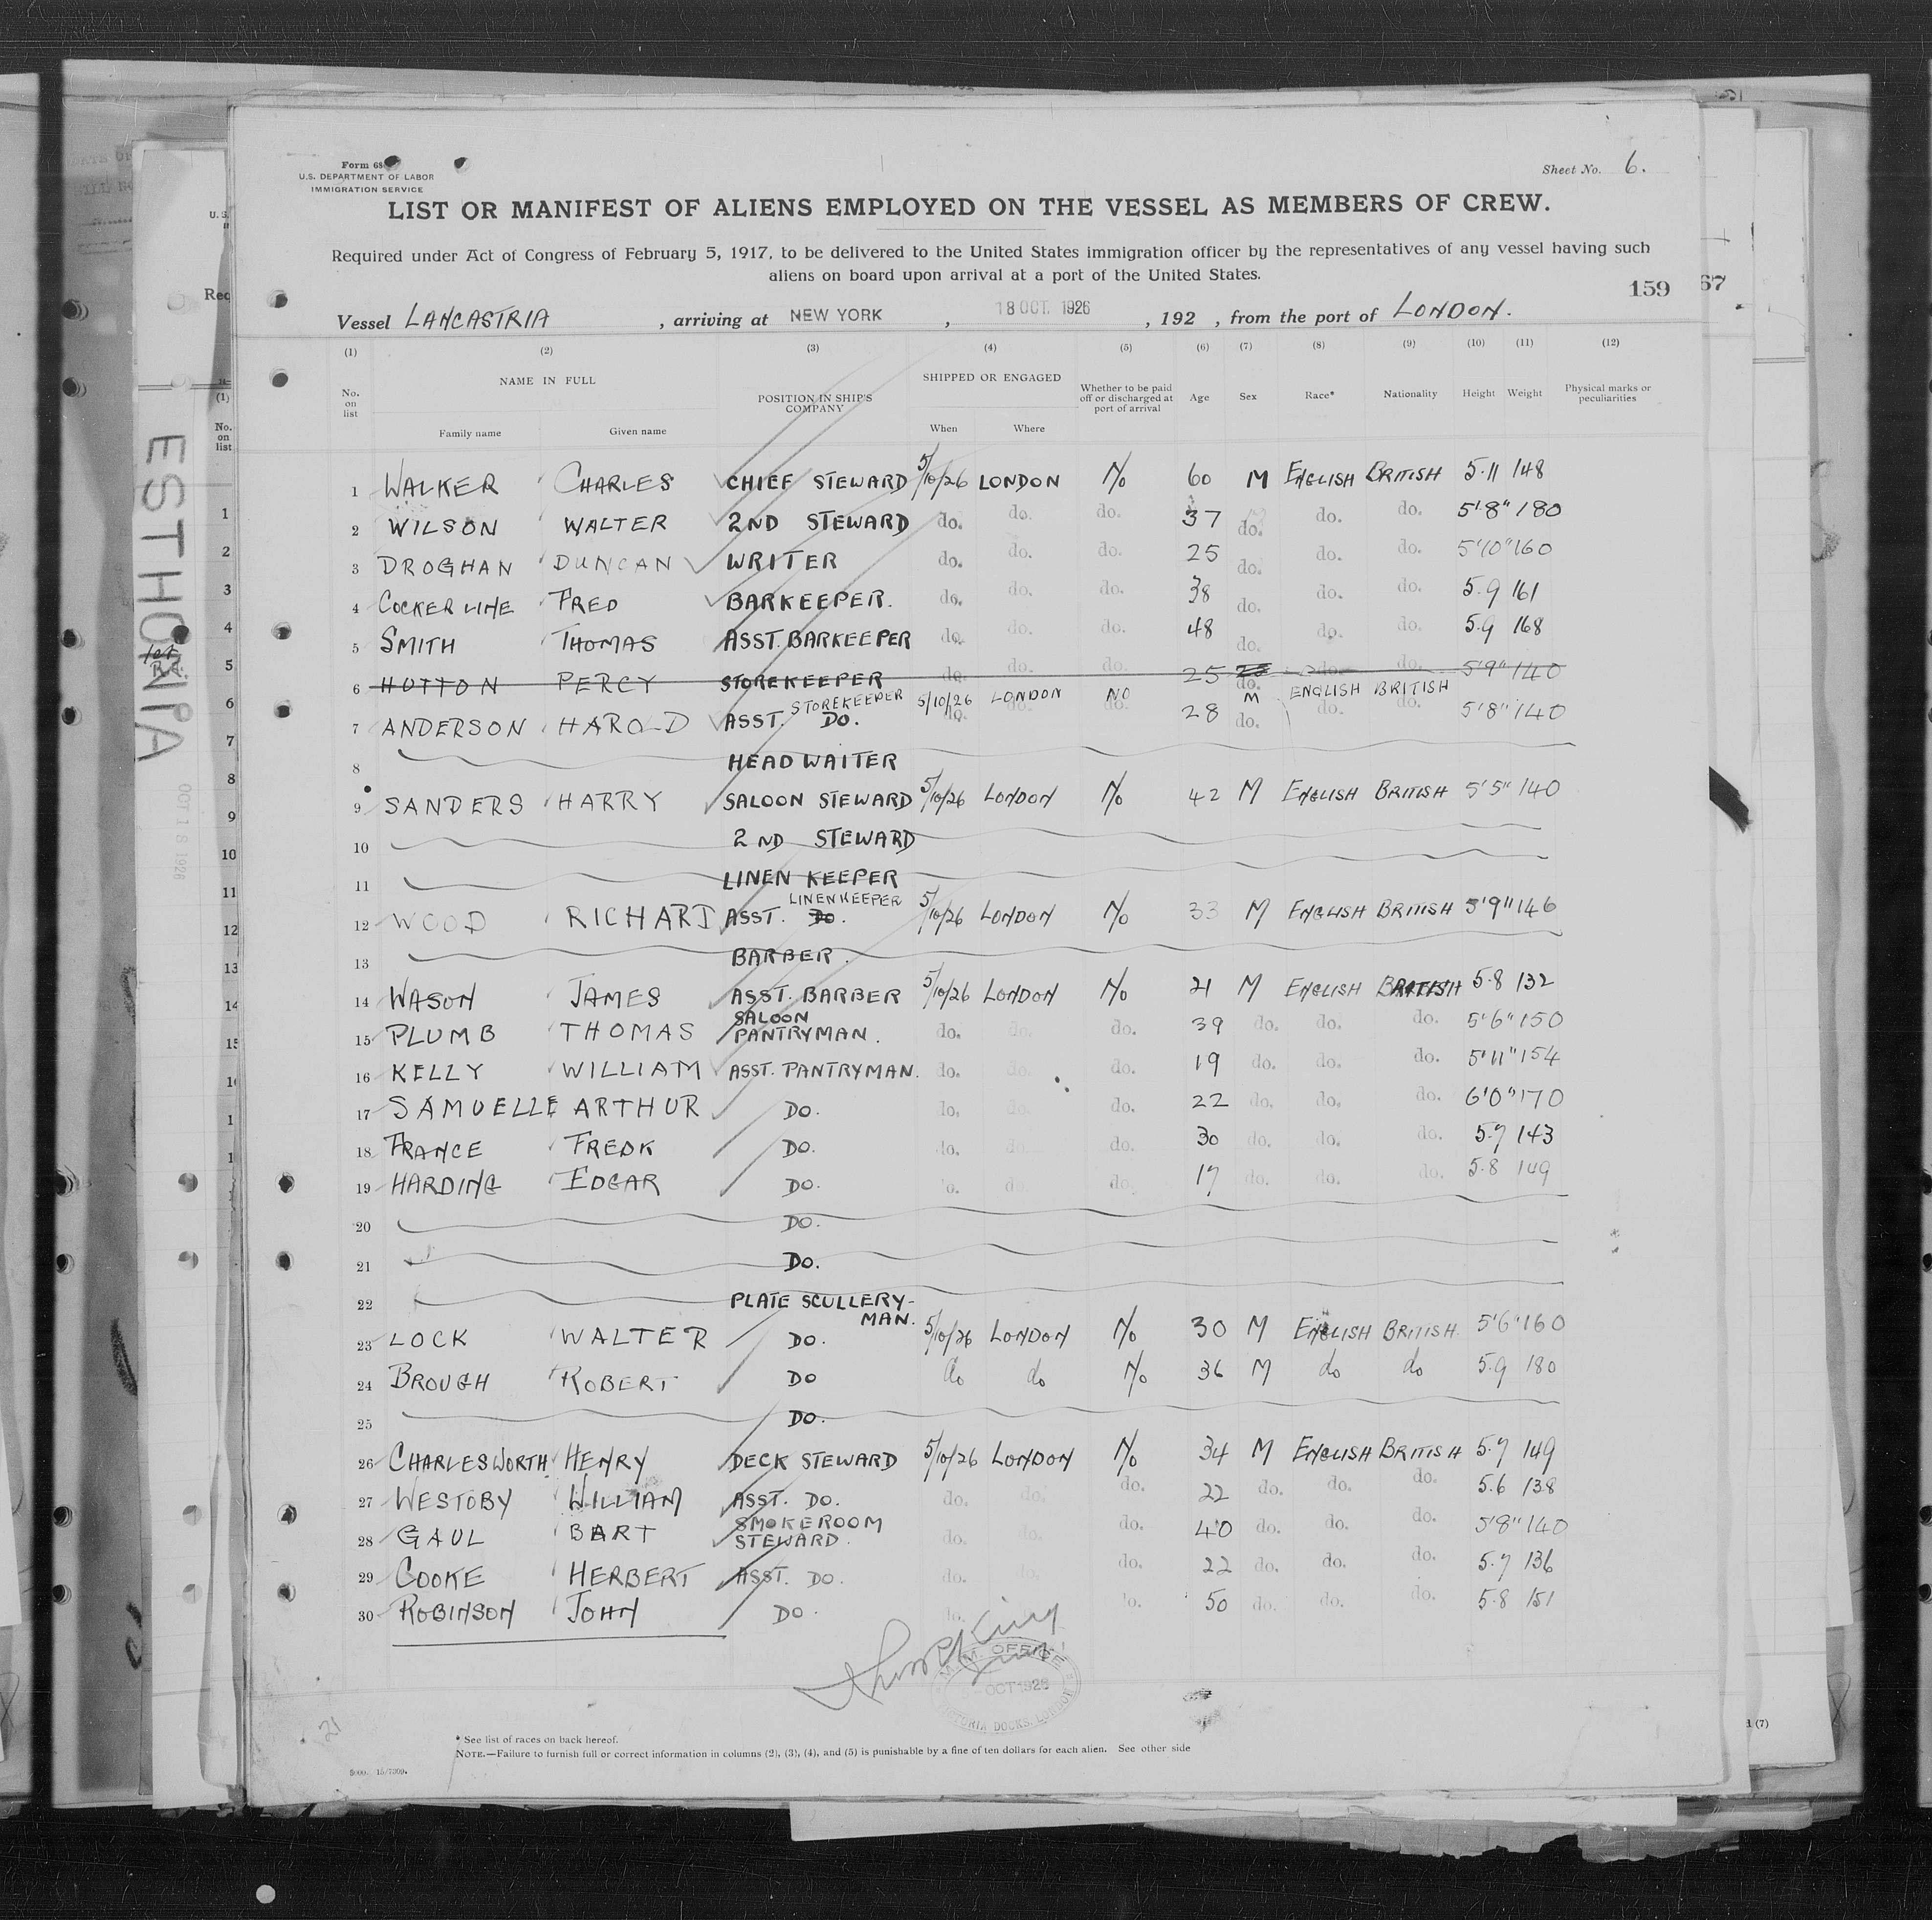 Form 68
U.S. DEPARTMENT OF LABOR
IMMIGRATION SERVICE
Sheet No. 6.
LIST OR MANIFEST OF ALIENS EMPLOYED ON THE VESSEL AS MEMBERS OF CREW.
Required under Act of Congress of February 5, 1917, to be delivered to the United States immigration officer by the representatives of any vessel having such
aliens on board upon arrival at a port of the United States.
159 67
Vessel LANCASTRIA, arriving at NEW YORK, 18 OCT. 1926, 192 , from the port of LONDON.
(1) (2) (3) (4) (5) (6) (7) (8) (9) (10) (11) (12)
No. on list NAME IN FULL POSITION IN SHIP'S COMPANY SHIPPED OR ENGAGED Whether to be paid off or discharged at port of arrival Age Sex Race* Nationality Height Weight Physical marks or peculiarities
Family name Given name When Where
1 WALKER CHARLES CHIEF STEWARD 5/10/26 LONDON No 60 M ENGLISH BRITISH 5.11 148
2 WILSON WALTER 2ND STEWARD do. do. do. 37 do. do. do. 5'8" 180
3 DROGHAN DUNCAN WRITER do. do. do. 25 do. do. do. 5'10" 160
4 COCKERLINE FRED BARKEEPER. do. do. do. 38 do. do. do. 5.9 161
5 SMITH THOMAS ASST. BARKEEPER do. do. do. 48 do. do. do. 5.9 168
6 HUTTON PERCY STOREKEEPER do. do. do. 25 do. do. do. 5'9" 140
STOREKEEPER 5/10/26 LONDON NO M ENGLISH BRITISH
7 ANDERSON HAROLD ASST. DO. do. do. do. 28 do. do. do. 5'8" 140
8 HEAD WAITER
9 SANDERS HARRY SALOON STEWARD 5/10/26 LONDON No 42 M ENGLISH BRITISH 5'5" 140
10 2ND STEWARD
11 LINEN KEEPER
LINENKEEPER
12 WOOD RICHARD ASST. DO. 5/10/26 LONDON No 33 M ENGLISH BRITISH 5'9" 146
13 BARBER.
14 WASON JAMES ASST. BARBER 5/10/26 LONDON No 21 M ENGLISH BRITISH 5.8 132
15 PLUMB THOMAS SALOON PANTRYMAN. do. do. do. 39 do. do. do. 5'6" 150
16 KELLY WILLIAM ASST. PANTRYMAN. do. do. do. 19 do. do. do. 5'11" 154
17 SAMUELLE ARTHUR DO. do. do. do. 22 do. do. do. 6'0" 170
18 FRANCE FREDK DO. do. do. do. 30 do. do. do. 5.7 143
19 HARDING EDGAR DO. do. do. do. 17 do. do. do. 5.8 149
20 DO.
21 DO.
22 PLATE SCULLERY-MAN.
23 LOCK WALTER DO. 5/10/26 LONDON No 30 M ENGLISH BRITISH 5'6" 160
24 BROUGH ROBERT DO do do No 36 M do do 5.9 180
25 DO.
26 CHARLESWORTH HENRY DECK STEWARD 5/10/26 LONDON No 34 M ENGLISH BRITISH 5.7 149
27 WESTOBY WILLIAM ASST. DO. do. do. do. 22 do. do. do. 5.6 138
28 GAUL BART SMOKEROOM STEWARD. do. do. do. 40 do. do. do. 5'8" 140
29 COOKE HERBERT ASST. DO. do. do. do. 22 do. do. do. 5.7 136
30 ROBINSON JOHN DO. do. do. 50 do. do. do. 5.8 151
M.M. OFFICE
OCT 1926
VICTORIA DOCKS. LONDON
21
* See list of races on back hereof.
NOTE.—Failure to furnish full or correct information in columns (2), (3), (4), and (5) is punishable by a fine of ten dollars for each alien. See other side
ESTHONIA
OCT 18 1926